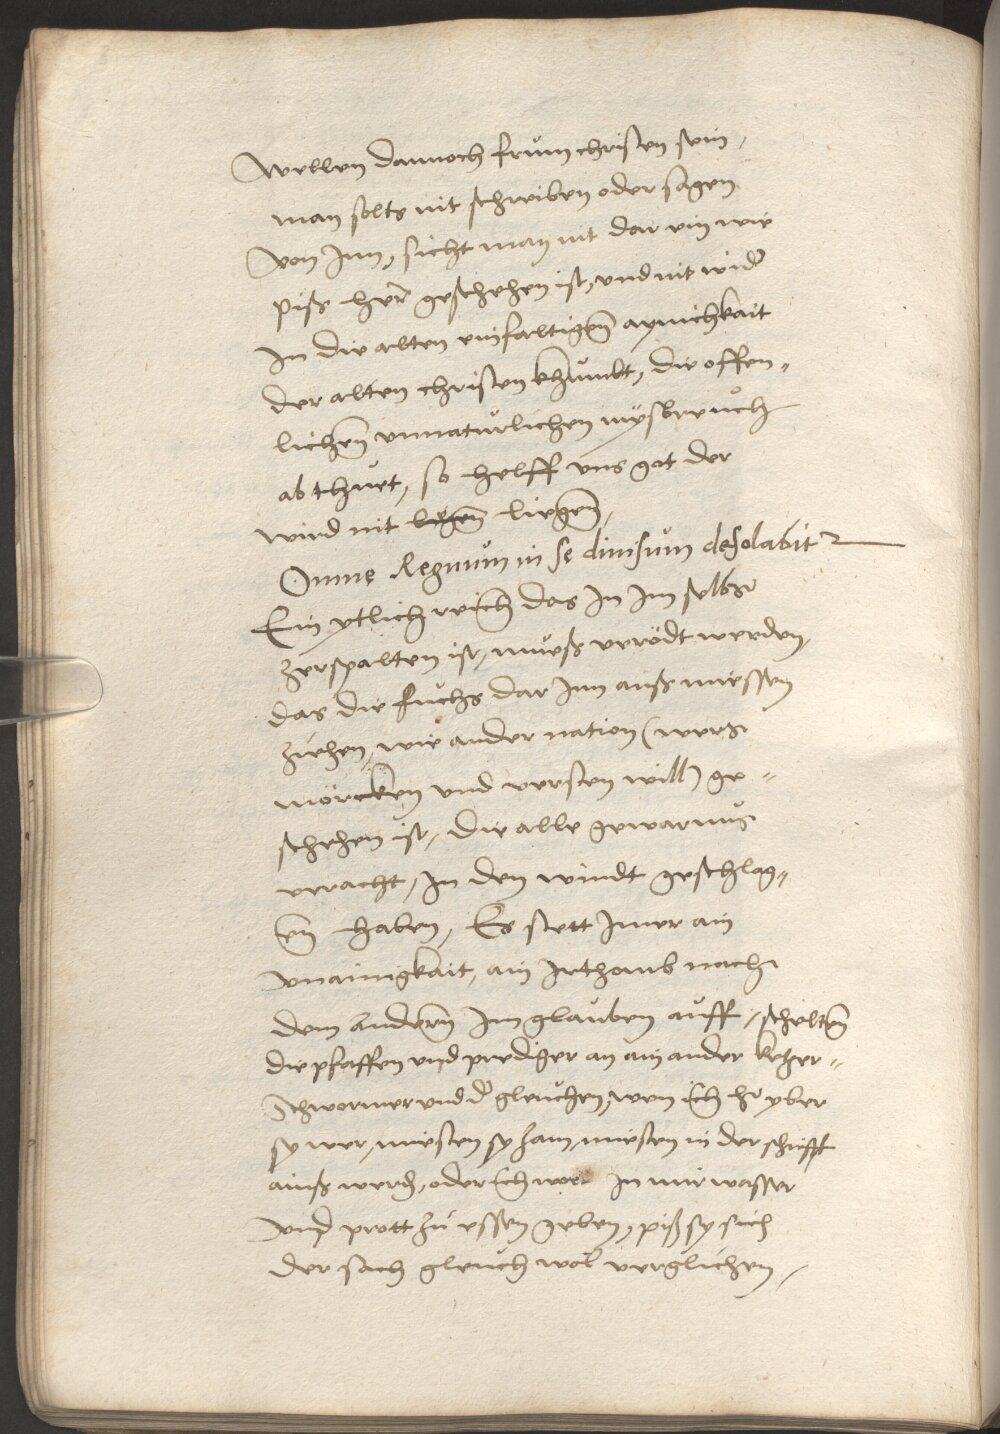 Wellen dannoch frum christen sein,
man solts nit schreiben oder sagen
von Jnn, sicht man nit dar ein wie
piß her geschehen ist, und nit wider
In die alten einfaltigen aynichkait
der alten christen khumbt, die offen„
lichen unnaturlichen mysbreuch
ab thuet, so helff uns got der
wird nit liegen,
Omne Regnum in se diuisum desolabitr
Ein ytlich reich das In im selbs
zerspalten ist, mueß verödt werden,
das die fuchs dar Inn auß miessen
ziehen, wie ander nation (wers
möreken und versten will) ge„
schehen ist, die alle gewarnus
veracht, In den windt geschlag„
en haben, Es stett Imer ain
unainigkait, ain Irthomb nach
dem andern Im glauben auff, schelten
die pfaffen und prediger an ain ander ketzer„
Schwormer und der gleichen, wen ich hr yber
sy wer, miesten sy zam, miesten in der schrifft
ainß werden, oder ich wolt In nur wasser
und prott zu essen geben, piß sy sich
der sach gleich wol verglichen,